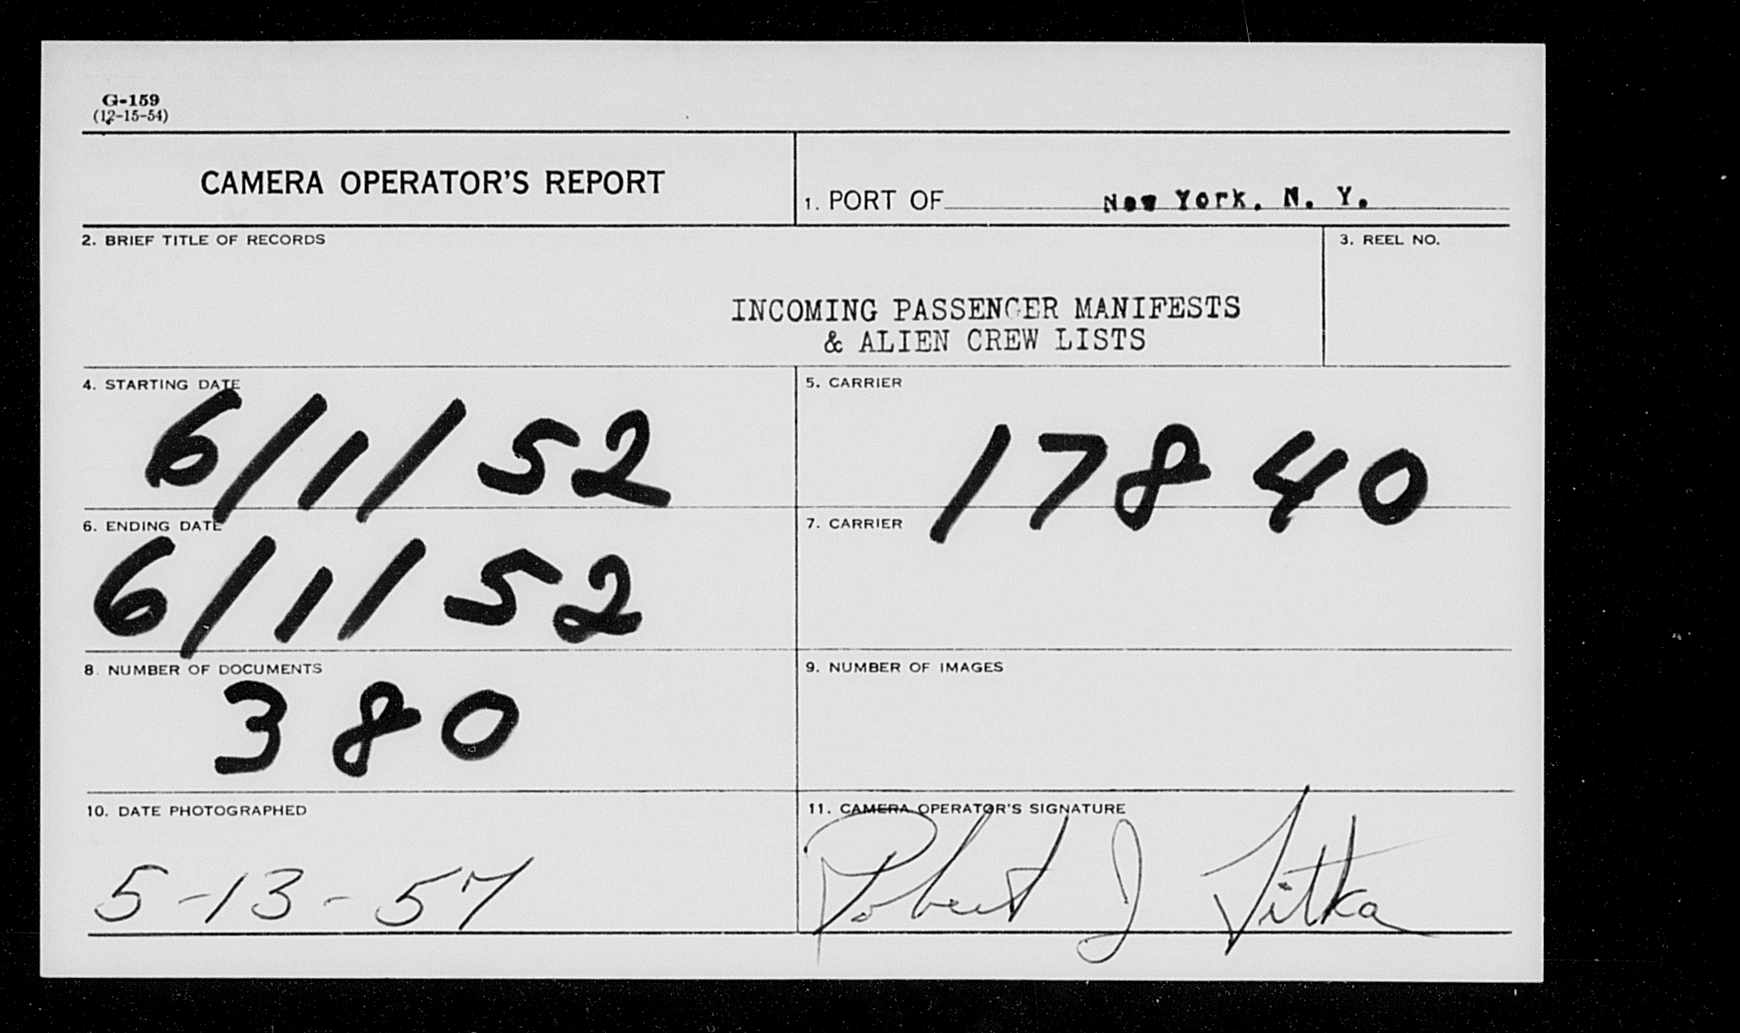 G-159
(12-15-54)
CAMERA OPERATOR'S REPORT
1. PORT OF New York, N. Y.
2. BRIEF TITLE OF RECORDS
3. REEL NO.
INCOMING PASSENGER MANIFESTS
& ALIEN CREW LISTS
4. STARTING DATE
6/1/52
5. CARRIER
17840
6. ENDING DATE
6/1/52
7. CARRIER
8. NUMBER OF DOCUMENTS
380
9. NUMBER OF IMAGES
10. DATE PHOTOGRAPHED
5-13-57
11. CAMERA OPERATOR'S SIGNATURE
Robert J